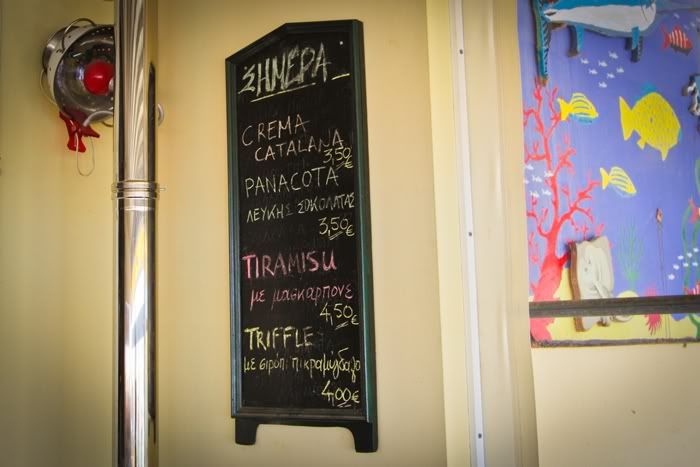 ΣΗΜΕΡΑ
CREMA
CATALANA
3,50€
PANACOTA
ΛΕΥΚΗΣ ΣΟΚΟΛΑΤΑΣ
3,50€
TIRAMISU
με μασκαρπονε
4,50€
TRIFFLE
με σιρόπι πικραμύγδαλο
4,00€